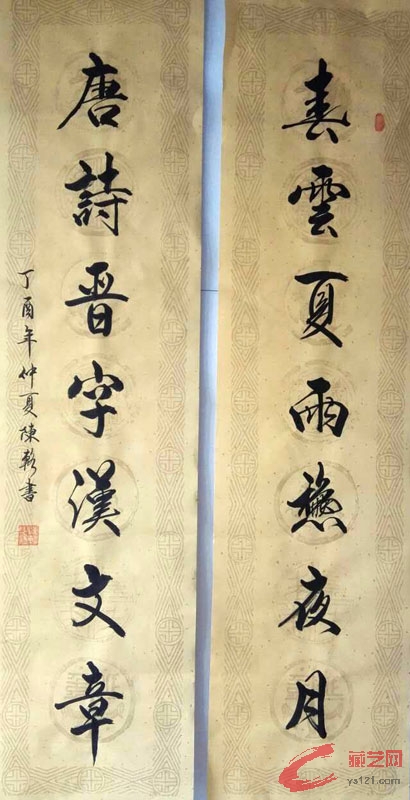 春雲夏雨穐夜月
唐詩晋字漢文章
丁酉年仲夏陳書
藏艺网
ys121.com